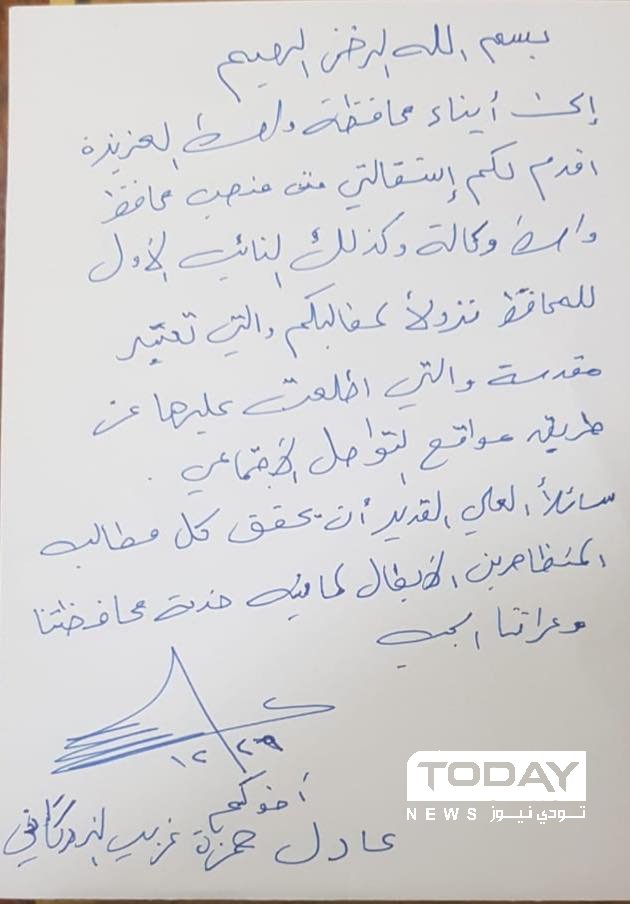 بسم الله الرحمن الرحيم
إلى أبناء محافظة واسط العزيزة
اقدم لكم إستقالتي من منصب محافظ
واسط وكالة وكذلك النائب الأول
للمحافظ نزولاً لمطالبكم والتي تعتبر
مقدسة والتي اطلعت عليها عن
طريق مواقع التواصل الاجتماعي .
سائلاً العلي القدير أن يحقق كل مطالب
المتظاهرين الابطال لما فيه خدمة محافظتنا
وعراقنا الحبيب
٢٩ ١٢
أخوكم
عادل حمزة غريب الزركاني
TODAY
NEWS تودي نيوز